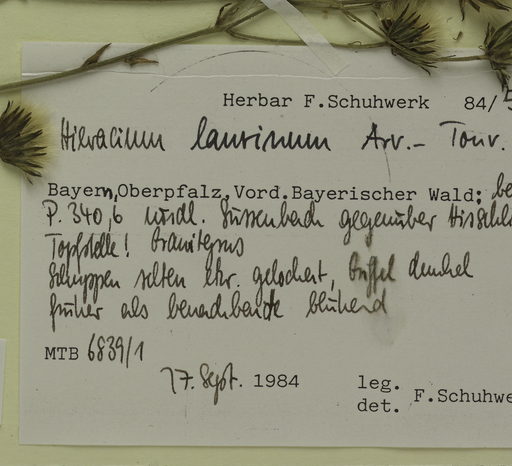 Herbar F.Schuhwerk 84/5
Hieracium laurinum Arv.- Touv.
Bayern, Oberpfalz, Vord. Bayerischer Wald: be
P. 340,6 nördl. Süssenbach gegenüber
! Granitgrus
Schuppen selten gelockert, Griffel dunkel
früher als benachbarte blühend
MTB 6839/1
17. Sept. 1984 leg.
det. F.Schuhwe